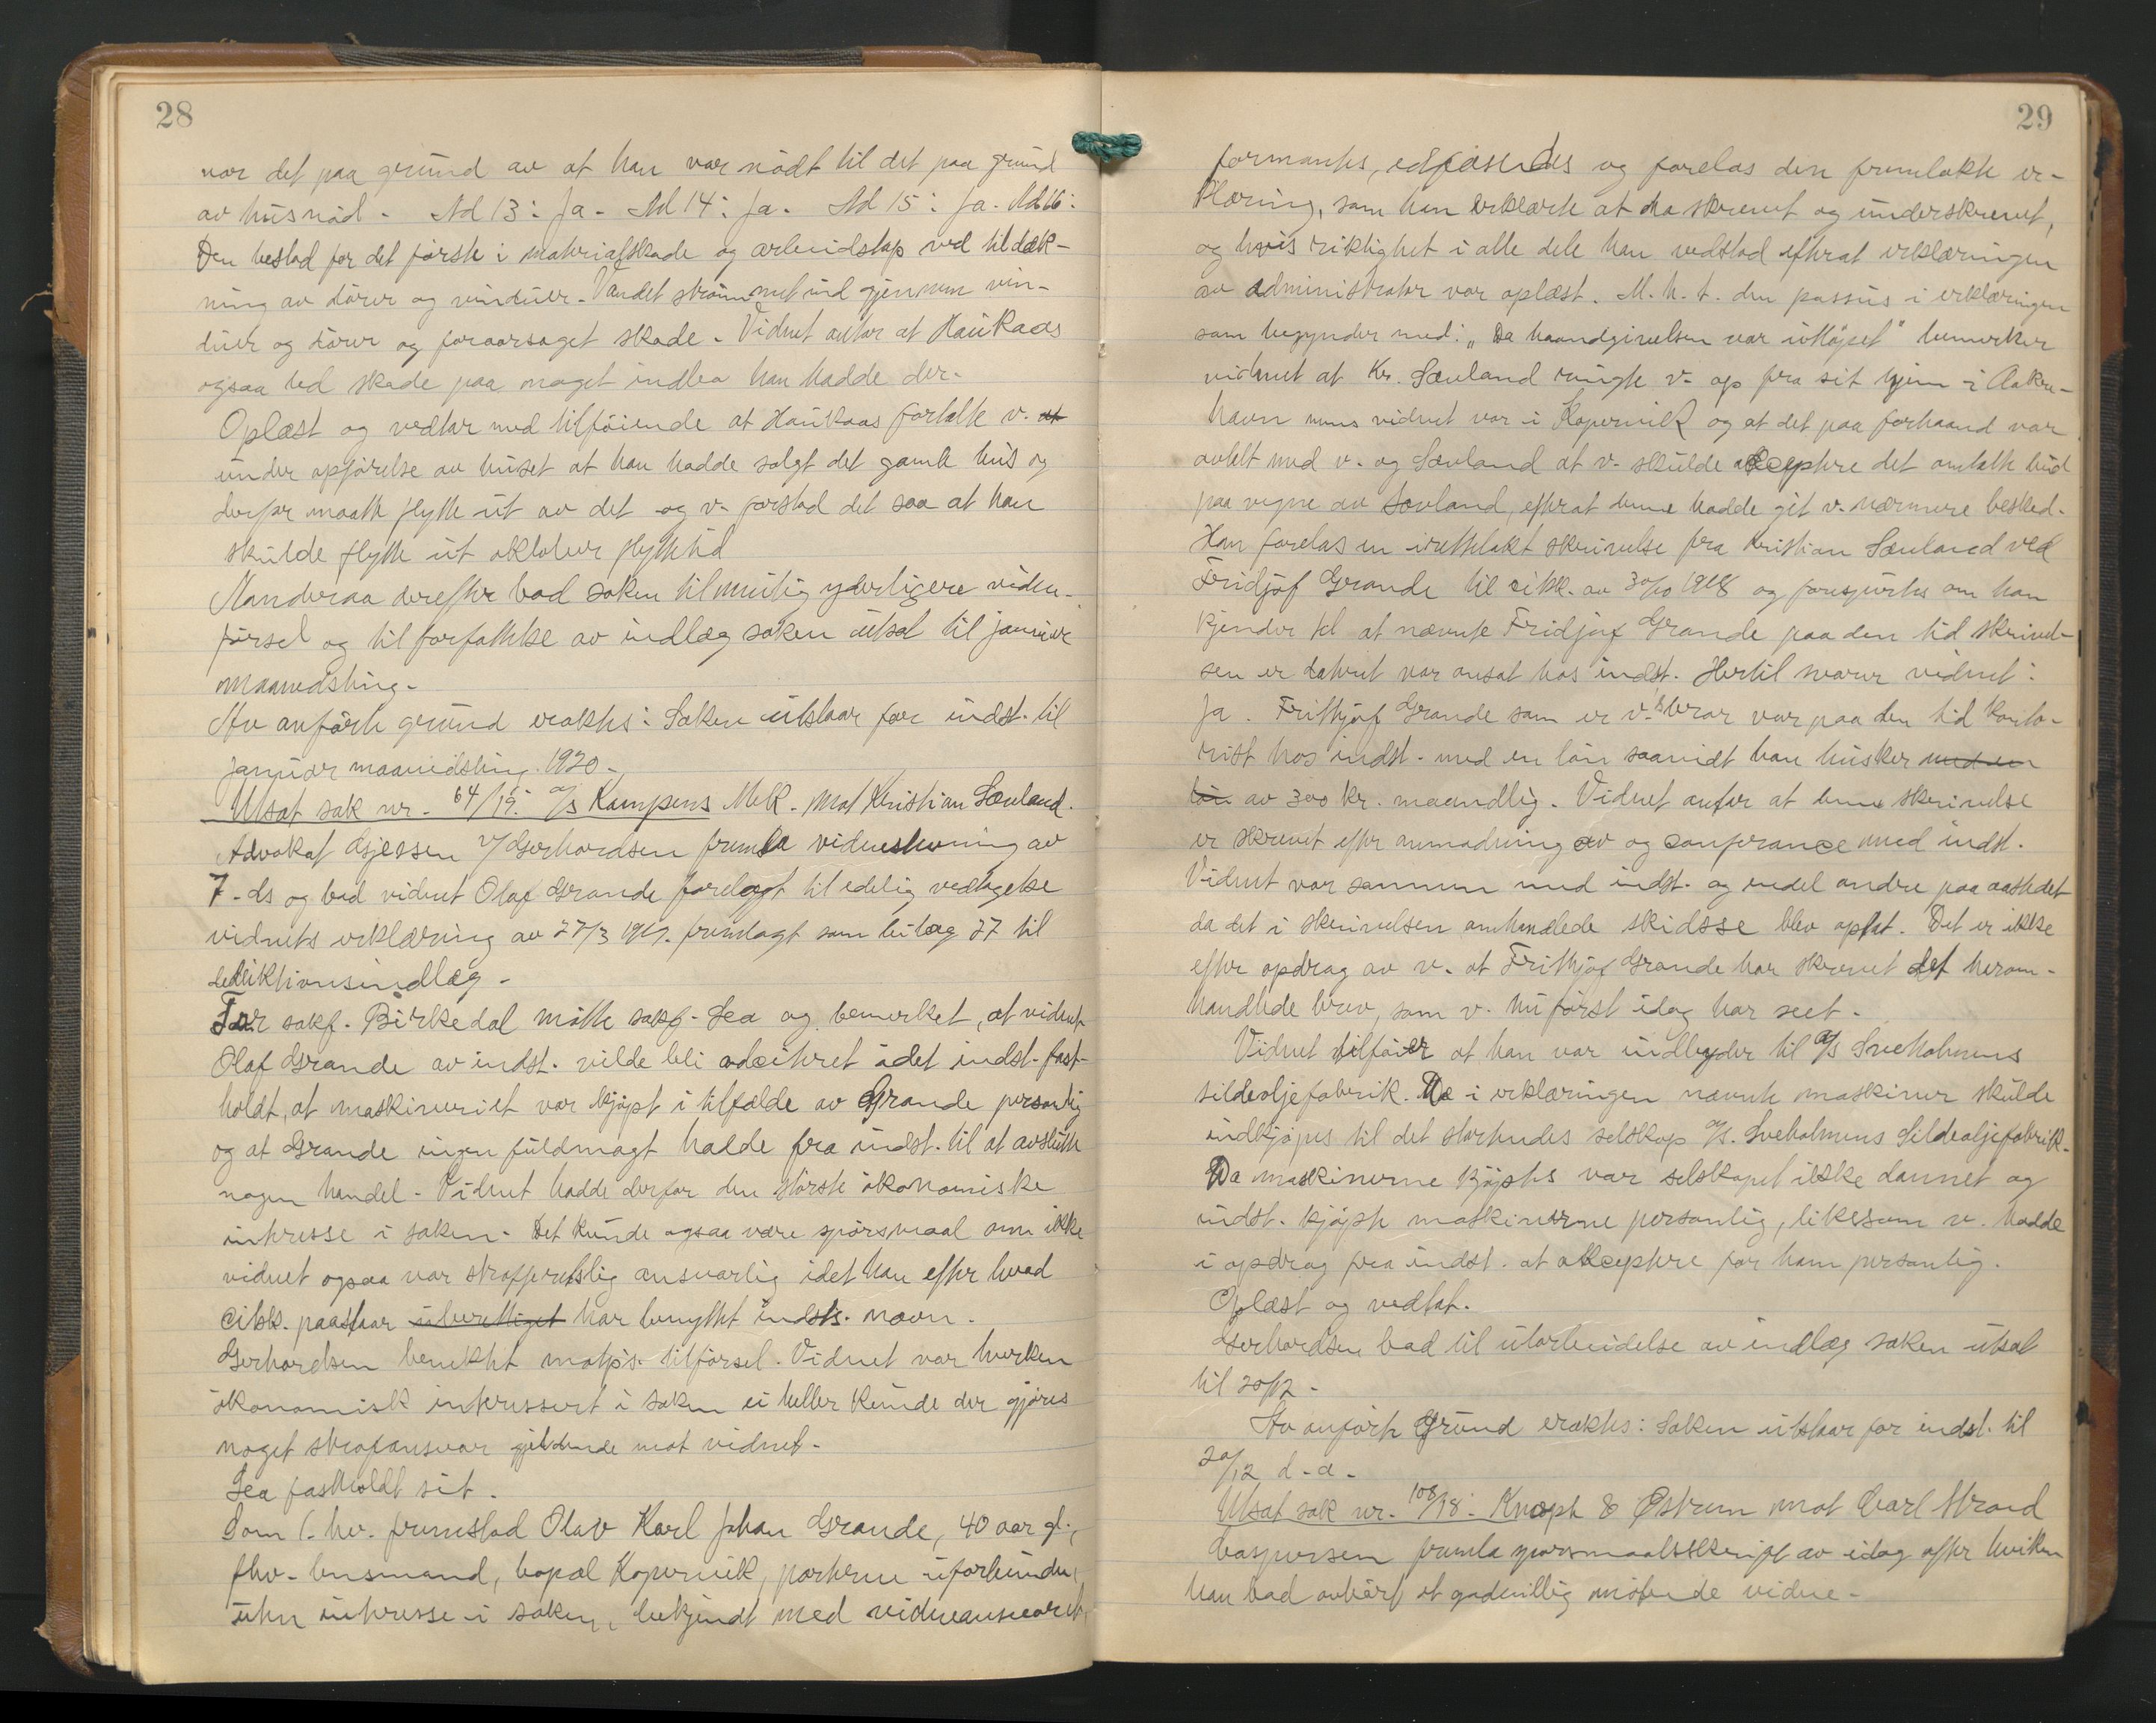 28
var det paa grund av at han var nödt til det paa grund
av husnöd. Ad 13: Ja. Ad 14: Ja. Ad 15: Ja. Ad 16:
Den bestod for det förste i materialskade og arbeidstap ved tildæk-
ning av dörer og vinduer. Vandet strömmet ind gjennem vin-
duer og dörer og foraarsaget skade. Vidnet antar at Haukaas
ogsaa led skade paa noget indbo han hadde der.
Oplæst og vedtar med tilföiende at Haukaas fortalte v. at
under opförelse av huset at han hadde solgt det gamle hus og
derfor maatte flytte ut av det og v. forstod det saa at han
skulde flytte ut oktober flyttetid
Manderaa derefter bad saken til mulig yderligere vidne-
försel og til forfattelse av indlæg saken utsat til januar
maanedsting.
Av anförte grund eraktes: Saken utstaar for indst. til
januar maanedsting 1920.
Utsat sak nr. 64/19. a/s Kampens Mek. mot Kristian Sævland.
Advokat Gjessen v/ Gerhardsen fremla vidnestevning av
7. ds og bad vidnet Olaf Grande forelagt til edelig vedtagelse
vidnets erklæring av 27/3 1919. fremlagt som bilag 27 til
deduktionsindlæg.
For sakf. Birkedal mötte sakf. Lea og bemerket, at vidnet
Olaf Grande av indst. vilde bli adciteret idet indst. fast-
holdt, at maskineriet var kjöpt i tilfælde av Grande personlig
og at Grande ingen fuldmagt hadde fra indst. til at avslutte
nogen handel. Vidnet hadde derfor den störste ökonomiske
interesse i saken. Det kunde ogsaa være spörsmaal om ikke
vidnet ogsaa var strafferetslig ansvarlig idet han efter hvad
citsk. paastaar uberettiget har benyttet indsts. navn.
Gerhardsen benektet motp's. tilförsel. Vidnet var hverken
ökonomisk interessert i saken ei heller kunde der gjöres
noget strafansvar gjeldende mot vidnet.
Lea fastholdt sit.
Som 1. hv. fremstod Olav Karl Johan Grande, 40 aar gl.,
fhv. lensmand, bopæl Kopervik, parterne uforbundet,
uten interesse i saken, bekjendt med vidneansvaret,
29
formantes, edfæstedes og forelas den fremlakte er-
klæring, som han erklærte at ha skrevet og underskrevet,
og hvis riktighet i alle dele han vedstod efterat erklæringen
av administrator var oplæst. M. h. t. den passus i erklæringen
som begynder med: „Da haandgivelsen var utlöpet" bemerker
vidnet at Kr. Sævland ringte v. op fra sit hjem i Aakre-
havn mens vidnet var i Kopervik og at det paa forhaand var
avtalt med v. og Sævland at v. skulde akceptere det omtalte bud
paa vegne av Sævland, efterat denne hadde git v. nærmere besked.
Han forelas en irettelakt skrivelse fra Kristian Sævland ved
Fridjof Grande til citk. av 30/10 1918 og forespurtes om han
kjender til at nævnte Fridjof Grande paa den tid skrivel-
sen er datert var ansat hos indst. Hertil svarer vidnet:
Ja. Frithjof Grande som er v.'s bror var paa den tid konto-
rist hos indst. med en lön saavidt han husker med en
lön av 300 kr. maandlig. Vidnet antar at denne skrivelse
er skrevet efter anmodning av og conferance med indst.
Vidnet var sammen med indst. og endel andre paa aastedet
da det i skrivelsen omhandlede skidsse blev optat. Det er ikke
efter opdrag av v. at Frithjof Grande har skrevet det herom-
handlede brev, som v. nu först idag har seet.
Vidnet tilföier at han var indbyder til a/s Sveholmens
sildoljefabrik. De i erklæringen nævnte maskiner skulde
indkjöpes til det startendes selskap a/s. Sveholmens Sildeoljefabrik.
Da maskinerne kjöptes var selskapet ikke dannet og
indst. kjöpte maskinerne personlig, likesom v. hadde
i opdrag fra indst. at akceptere for ham personlig.
Oplæst og vedtat.
Gerhardsen bad til utarbeidelse av indlæg saken utsat
til 20/12.
Av anförte grund eraktes: Saken utstaar for indst. til
20/12 d. a.
Utsat sak nr. 108/18. Knoph & Østrem mot Carl Strand
Caspersen fremla spörsmaalsskrift av idag efter hvilken
han bad avhört et godvillig mötende vidne.